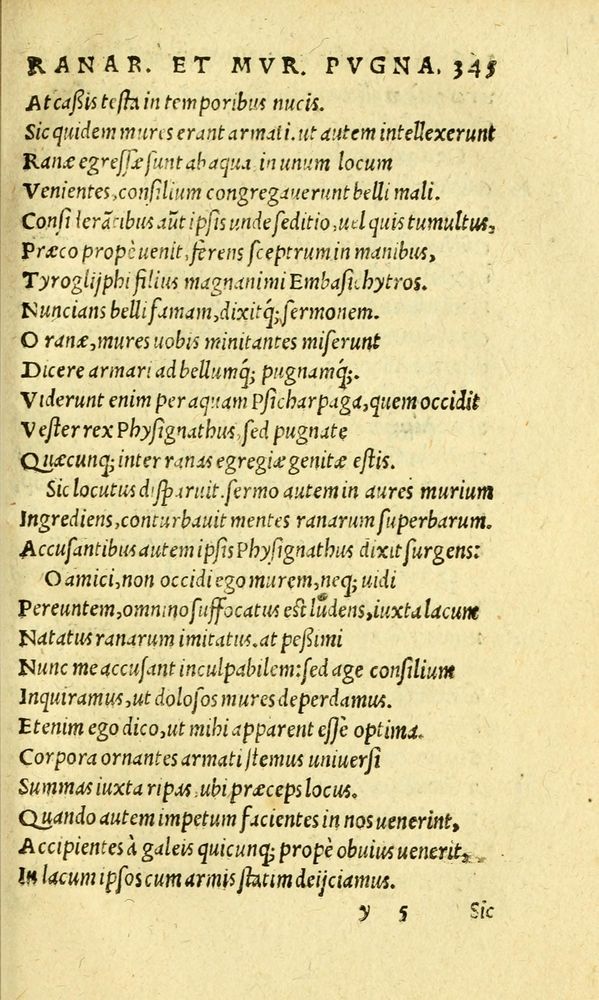 RANAR. ET MVR. PVGNA. 345
At caßis testa in temporibus nucis.
Sic quidem mures erant armati. ut autem intellexerunt
Ranæ egressæ sunt ab aqua, in unum locum
Venientes, consilium congregauerunt belli mali.
Consideratibus aut̃ ipsis unde seditio, uel quis tumultus,
Præco propè uenit, ferens sceptrum in manibus,
Tyroglijphi filius magnanimi Embasichytros.
Nuncians belli famam, dixitq́; sermonem.
O ranæ, mures uobis minitantes miserunt
Dicere armari ad bellumq́; pugnamq́;.
Viderunt enim per aquam Psicharpaga, quem occidit
Vester rex Physignathus, sed pugnate
Quæcunq; inter ranas egregiæ genitæ estis.
Sic locutus disparuit. sermo autem in aures murium
Ingrediens, conturbauit mentes ranarum superbarum.
Accusantibus autem ipsis Physignathus dixit surgens:
O amici, non occidi ego murem, neq; uidi
Pereuntem, omnino suffocatus est ludens, iuxta lacum
Natatus ranarum imitatus. at peßimi
Nunc me accusant inculpabilem: sed age consilium
Inquiramus, ut dolosos mures deperdamus.
Etenim ego dico, ut mihi apparent esse optima.
Corpora ornantes armati stemus uniuersi
Summas iuxta ripas, ubi præceps locus.
Quando autem impetum facientes in nos uenerint,
Accipientes à galeis quicunq; propè obuius uenerit,
In lacum ipsos cum armis statim deijciamus.
y 5 Sic